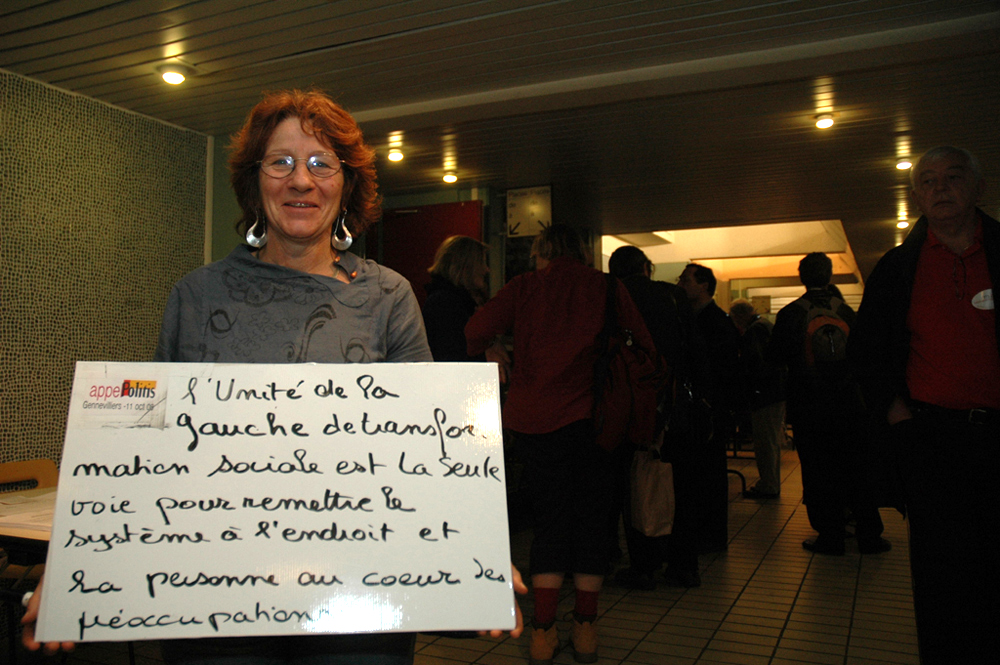 appel Politis
Gennevilliers - 11 oct 08
l'Unité de la
gauche de transfor-
mation sociale est la seule
voie pour remettre le
système à l'endroit et
la personne au coeur des
préoccupations